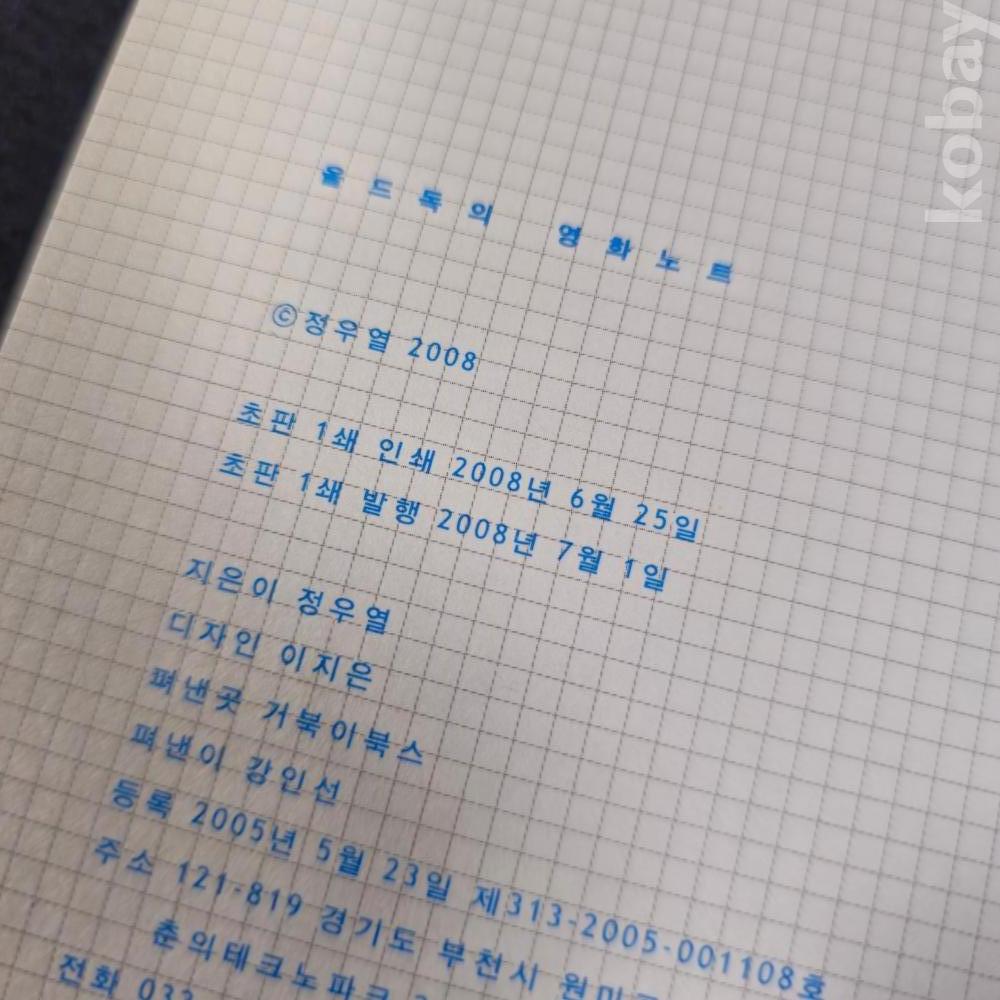 올드독의 영화노트
©정우열 2008
초판 1쇄 인쇄 2008년 6월 25일
초판 1쇄 발행 2008년 7월 1일
지은이 정우열
디자인 이지은
펴낸곳 거북이북스
펴낸이 강인선
등록 2005년 5월 23일 제313-2005-001108호
주소 121-819 경기도 부천시
춘의테크노파크
전화 032
kobay